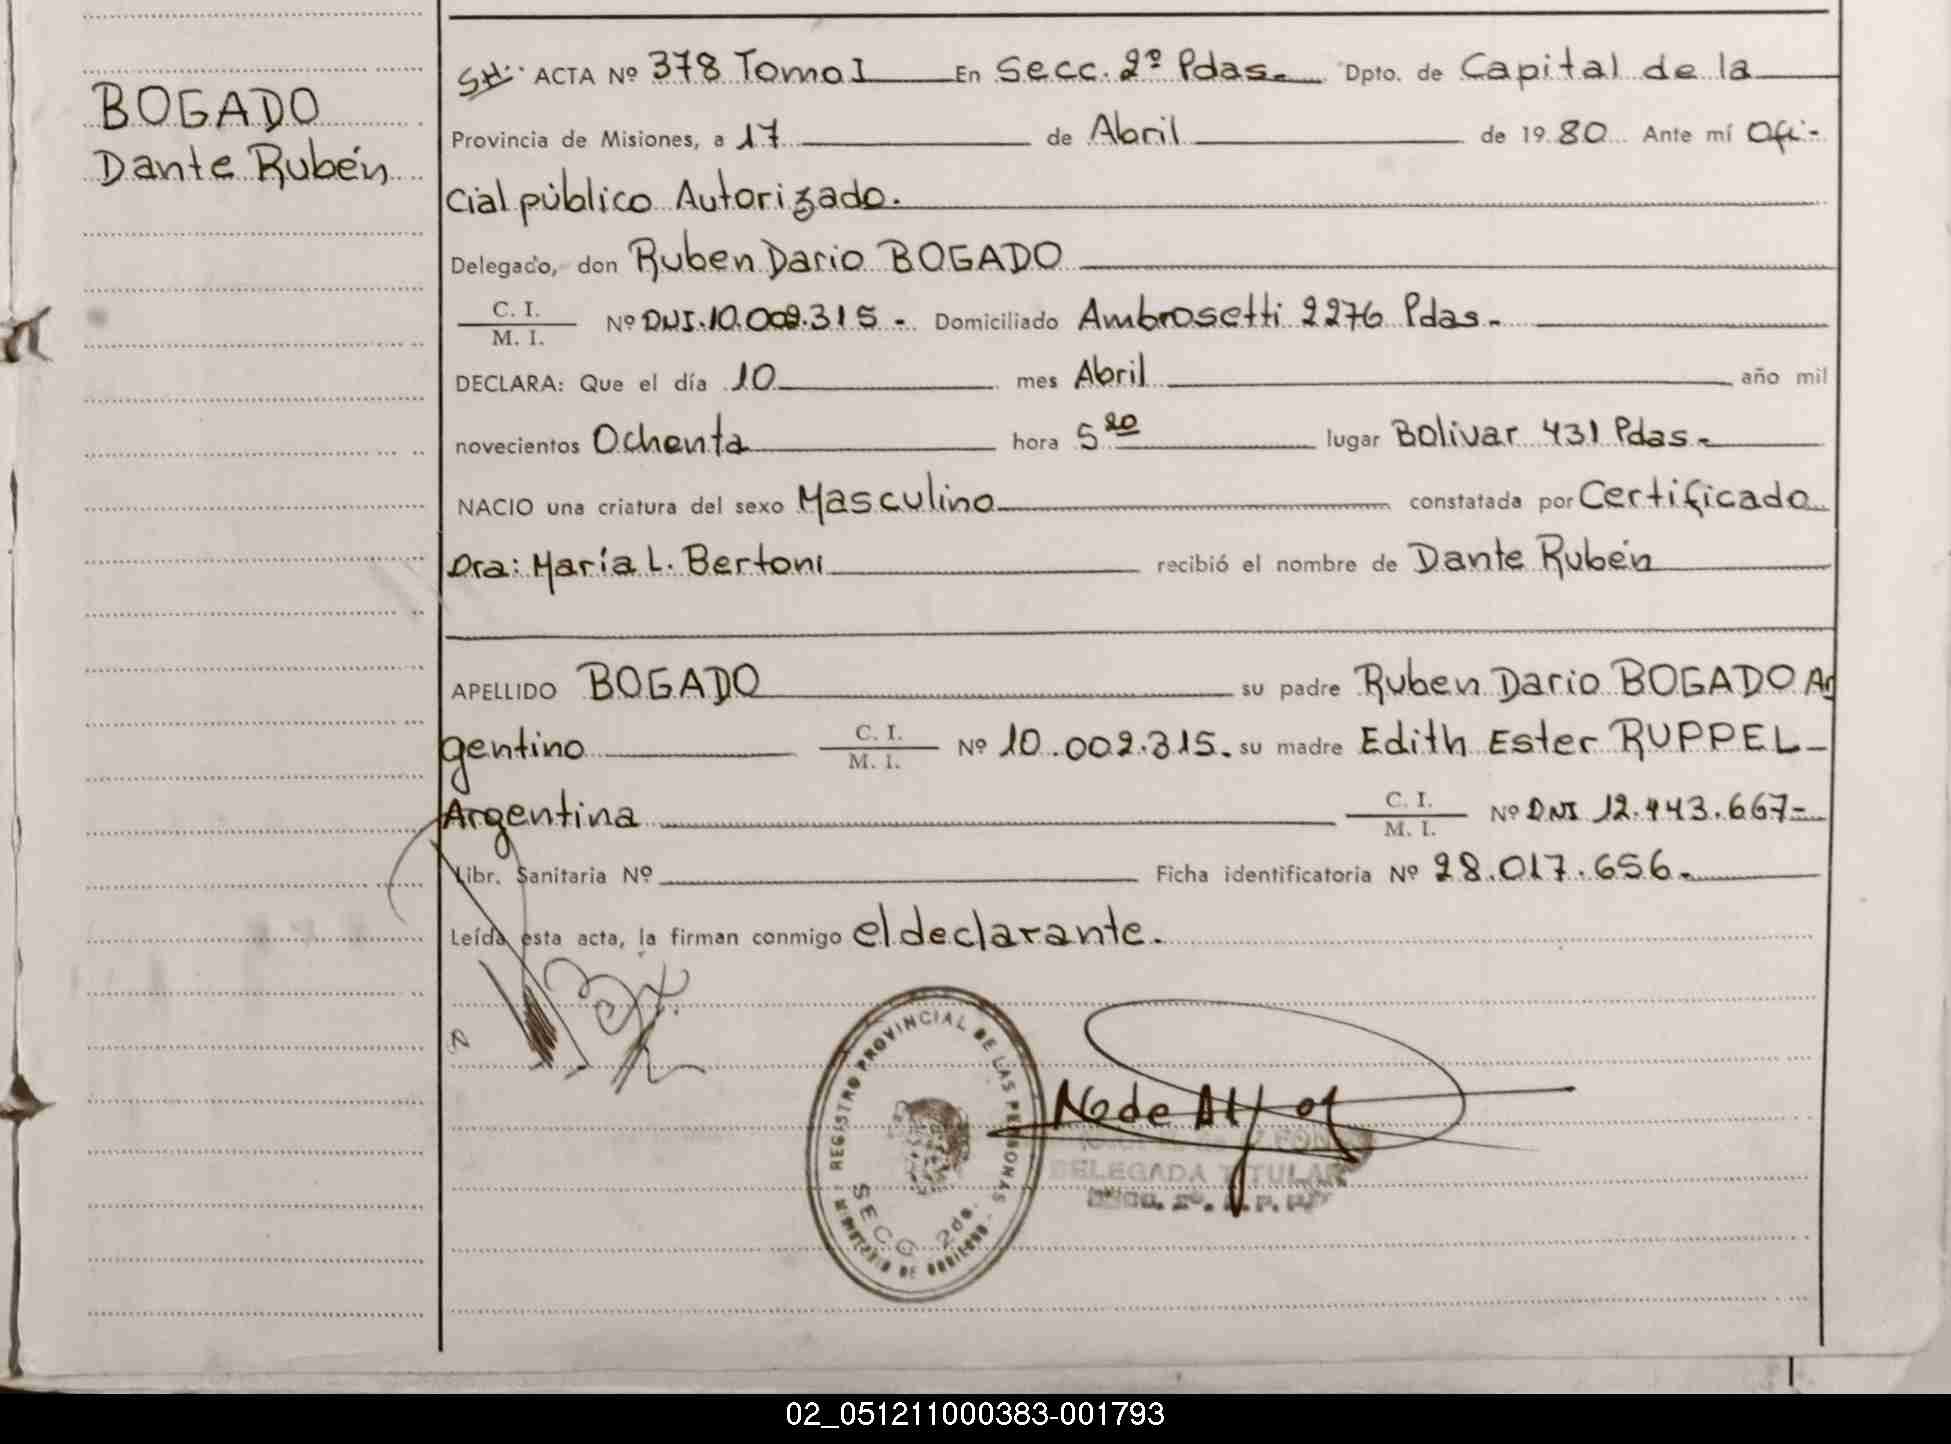 BOGADO
Dante Rubén
ACTA Nº 378 Tomo I En Secc. 2º Pdas. Dpto. de Capital de la
Provincia de Misiones, a 17 de Abril de 1980 Ante mí Ofi-
cial público Autorizado.
Delegado, don Ruben Dario BOGADO
C. I.
M. I. Nº DNI.10.002.315 - Domiciliado Ambrosetti 2276 Pdas-
DECLARA: Que el día 10 mes Abril año mil
novecientos Ochenta hora 5 20 lugar Bolivar 431 Pdas-
NACIO una criatura del sexo Masculino constatada por Certificado
Dra: María L. Bertoni recibió el nombre de Dante Rubén
APELLIDO BOGADO su padre Ruben Dario BOGADO Ar
gentino C. I.
M. I. Nº 10.002.315. su madre Edith Ester RUPPEL-
Argentina C. I.
M. I. Nº DNI 12.443.667-
Libr. Sanitaria Nº Ficha identificatoria Nº 28.017.656.
Leída esta acta, la firman conmigo el declarante.
REGISTRO PROVINCIAL DE LAS PERSONAS
SECC 2da.
MINISTERIO DE GOBIERNO
DELEGADA TITULAR
02_051211000383-001793